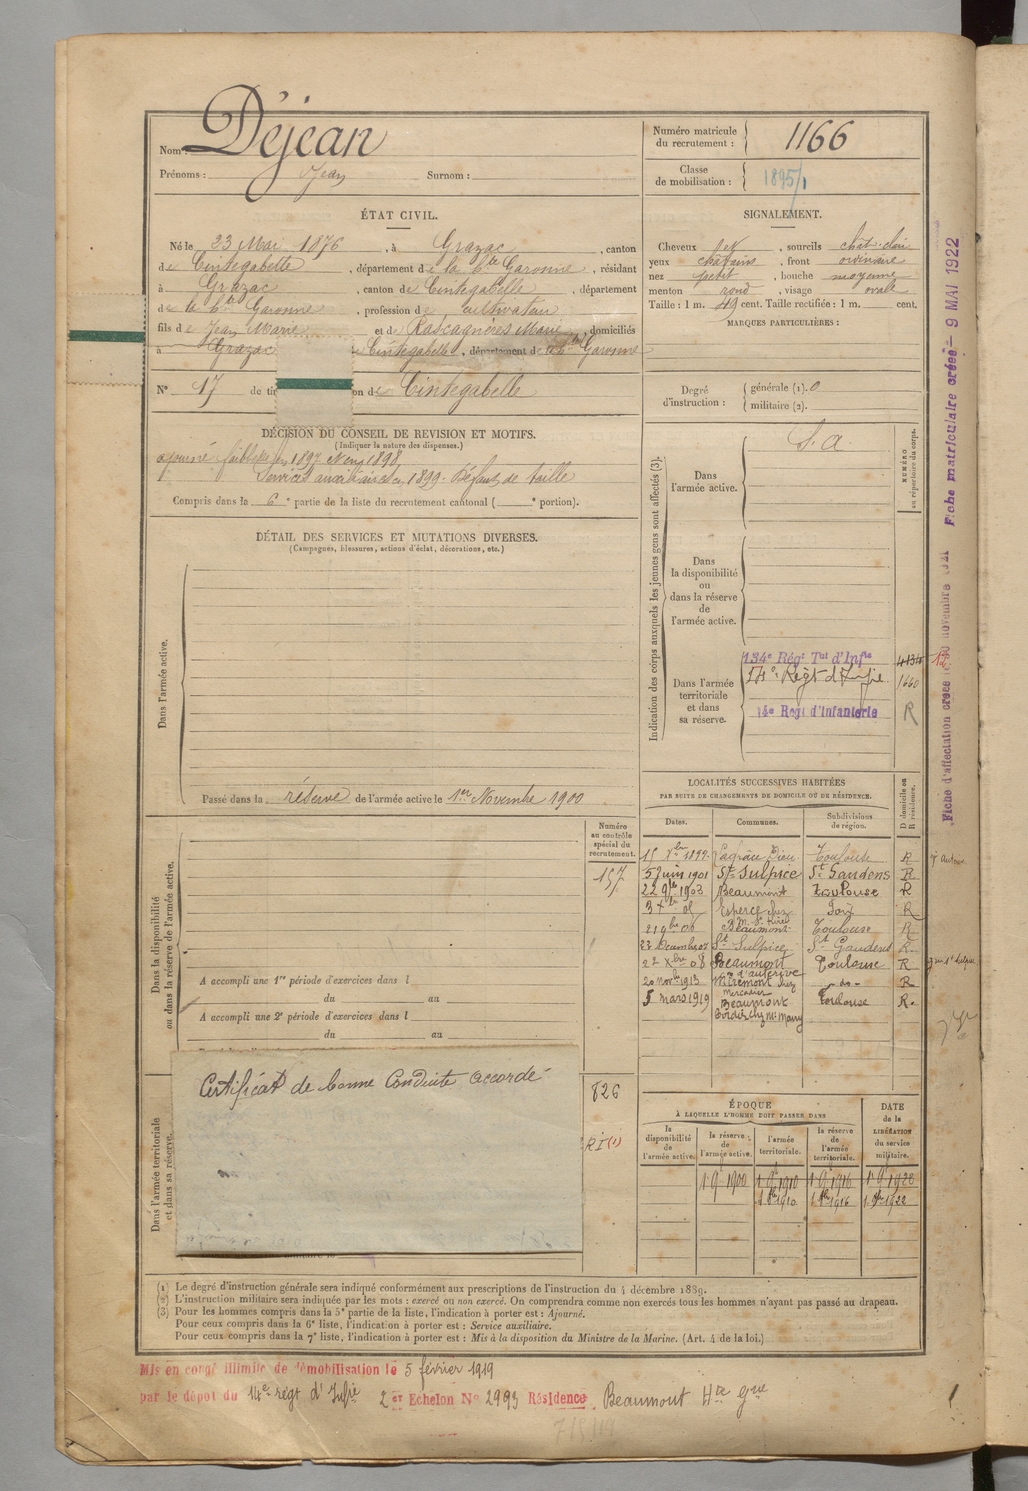 Nom : Déjean
Prénoms : Jean Surnom :
Numéro matricule du recrutement : 1166
Classe de mobilisation : 1895/1
ÉTAT CIVIL.
Né le 23 Mai 1876, à Grazac, canton
de Cintegabelle, département de la hte Garonne, résidant
à Grazac, canton de Cintegabelle, département
de la hte Garonne, profession de cultivateur
fils de Jean Marie et de Rascagnères Marie, domiciliés
à Grazac Cintegabelle, département de la hte Garonne
N° 17 de tir on de Cintegabelle
SIGNALEMENT.
Cheveux , sourcils chat. clair
yeux chatains, front ordinaire
nez petit, bouche moyenne
menton rond, visage ovale
Taille : 1 m. 49 cent. Taille rectifiée : 1 m. cent.
MARQUES PARTICULIÈRES :
Degré d'instruction : générale (1). 0
militaire (2).
DÉCISION DU CONSEIL DE REVISION ET MOTIFS.
(Indiquer la nature des dispenses.)
ajourné faiblesse en 1897. 1898
Services auxiliaires en 1899. Défaut de taille
Compris dans la 6e partie de la liste du recrutement cantonal ( e portion).
DÉTAIL DES SERVICES ET MUTATIONS DIVERSES.
(Campagnes, blessures, actions d'éclat, décorations, etc.)
Dans l'armée active.
Passé dans la réserve de l'armée active le 1er Novembre 1900
Indication des corps auxquels les jeunes gens sont affectés (3).
NUMÉRO au répertoire du corps.
Dans l'armée active.
S. A.
Dans la disponibilité ou dans la réserve de l'armée active.
Dans l'armée territoriale et dans sa réserve.
134e Régt Tal d'Infie
14e Régt d'Infie 1660
14e Régt d'Infanterie R
Numéro au contrôle spécial du recrutement.
157
Dans la disponibilité ou dans la réserve de l'armée active.
A accompli une 1re période d'exercices dans l
du au
A accompli une 2e période d'exercices dans l
du au
Certificat de bonne Conduite accordé
826
RI (1)
Dans l'armée territoriale et dans sa réserve.
LOCALITÉS SUCCESSIVES HABITÉES
PAR SUITE DE CHANGEMENTS DE DOMICILE OU DE RÉSIDENCE.
Dates. Communes. Subdivisions de région. D domicile ou R résidence.
15 Xbre 1899. Lagrâce Dieu Toulouse R
5 Juin 1901 St Sulpice St Gaudens R
22 9bre 1903 Beaumont Toulouse R
Esperce chez Foix R
21 9bre 06 Beaumont Toulouse R
27 Décembre 07 St Sulpice St Gaudens R
22 Xbre 08 Beaumont Toulouse R
20 novbre 1913 Miremont chez Mercadier -do- R
5 mars 1919 Beaumont Toulouse R.
ÉPOQUE
À LAQUELLE L'HOMME DOIT PASSER DANS
la disponibilité de l'armée active. la réserve de l'armée active. l'armée territoriale. la réserve de l'armée territoriale.
DATE de la LIBÉRATION du service militaire.
1 9e 1900 1 9e 1910 1 9e 1916 1 9e 1922
1 9bre 1910 1 9bre 1916 1 9bre 1922
(1) Le degré d'instruction générale sera indiqué conformément aux prescriptions de l'instruction du 4 décembre 1889.
(2) L'instruction militaire sera indiquée par les mots : exercé ou non exercé. On comprendra comme non exercés tous les hommes n'ayant pas passé au drapeau.
(3) Pour les hommes compris dans la 5e partie de la liste, l'indication à porter est : Ajourné.
Pour ceux compris dans la 6e liste, l'indication à porter est : Service auxiliaire.
Pour ceux compris dans la 7e liste, l'indication à porter est : Mis à la disposition du Ministre de la Marine. (Art. 4 de la loi.)
Mis en congé illimité de démobilisation le 5 février 1919
par le dépôt du 14e régt d'Infie 2er Echelon N° 2993 Résidence Beaumont Hte Gne
Fiche matriculaire créée - 9 MAI 1922
Fiche d'affectation créée novembre